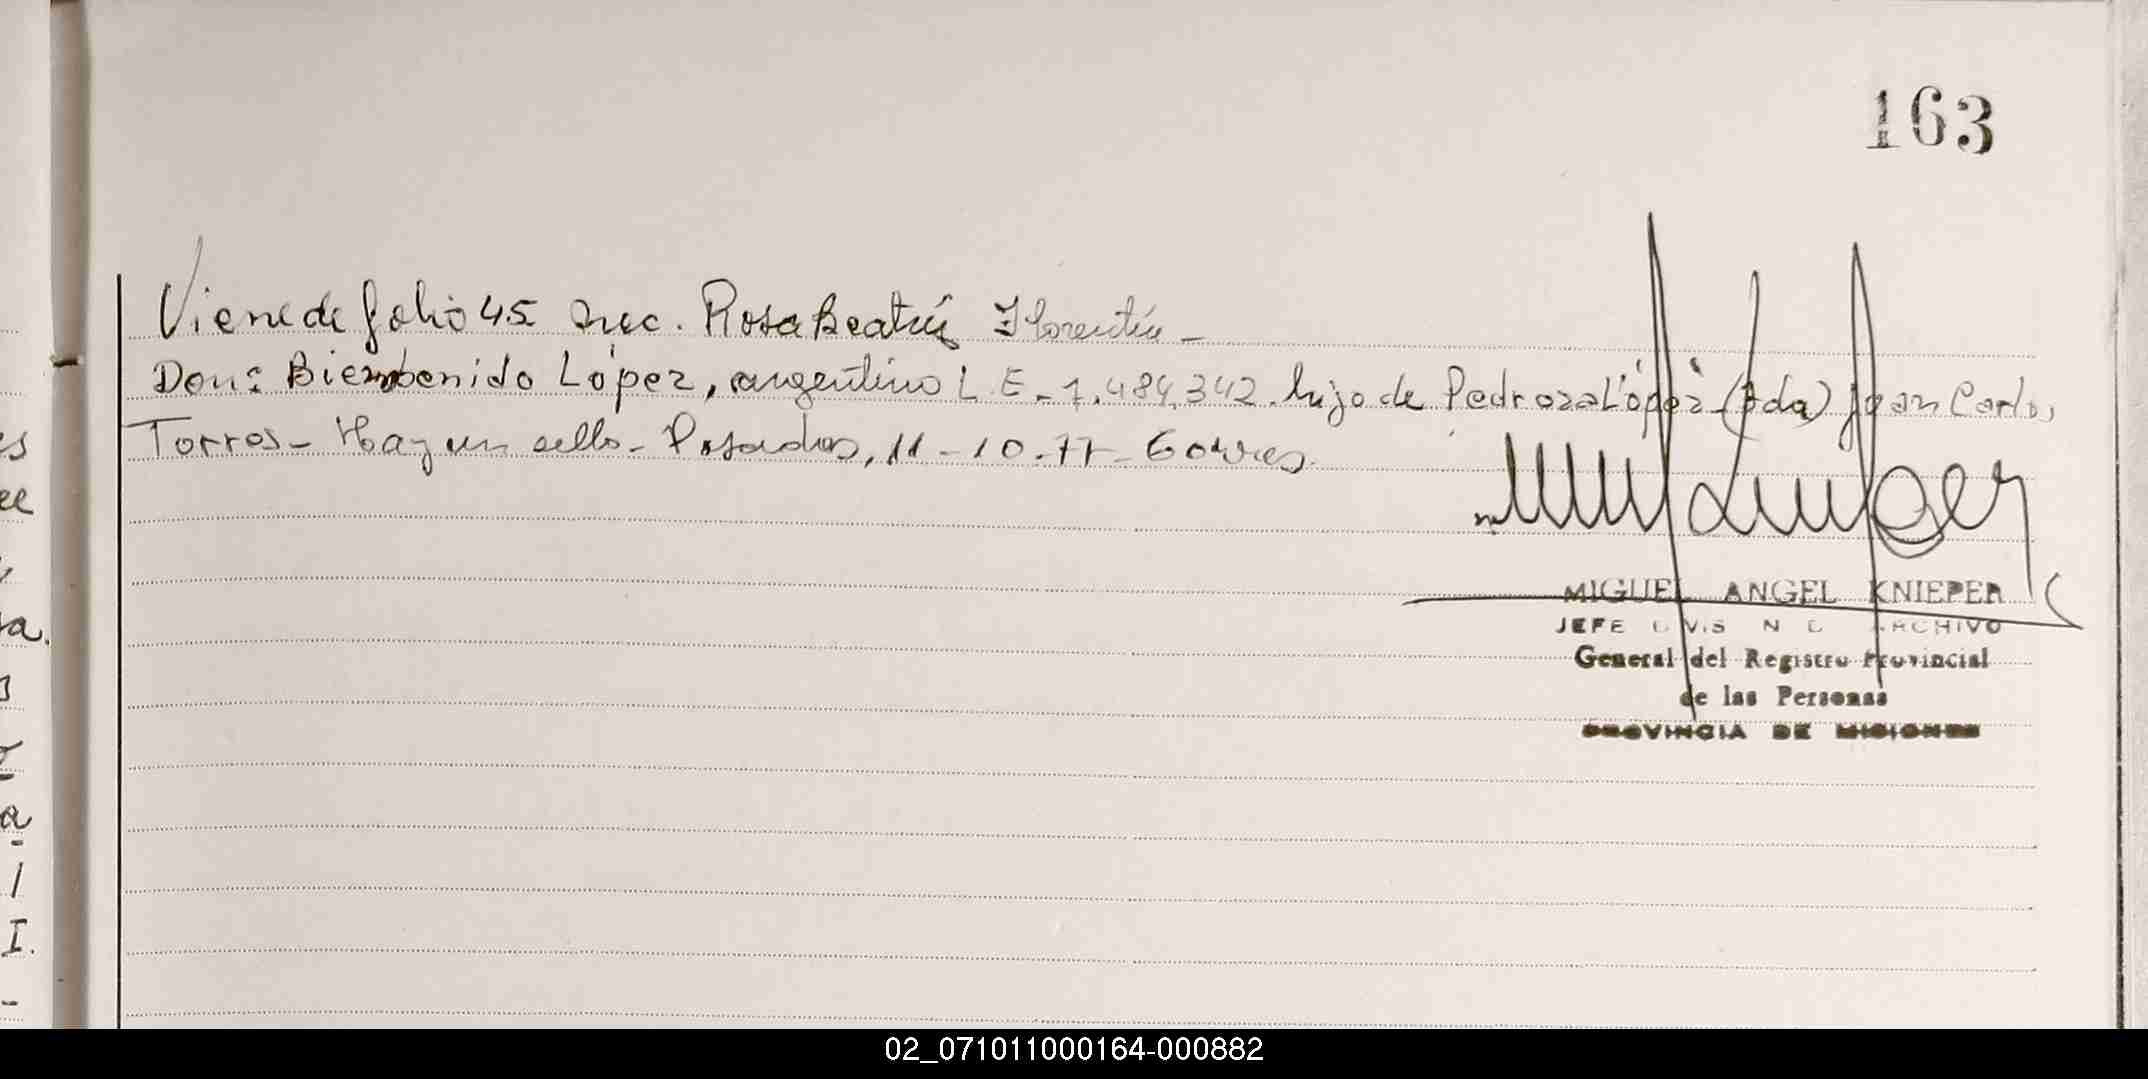 163
Viene de folio 45 Insc. Rosa Beatriz Florentín -
Don: Biembenido López, argentino L.E. 7.484.342. hijo de Pedroza López - (fda) Juan Carlos
Torres - Hay un sello - Posadas, 11-10-77-
MIGUEL ANGEL KNIEPER
JEFE ARCHIVO
General del Registro Provincial
de las Personas
PROVINCIA DE MISIONES
es
ee
ra.
a
I.
02_071011000164-000882